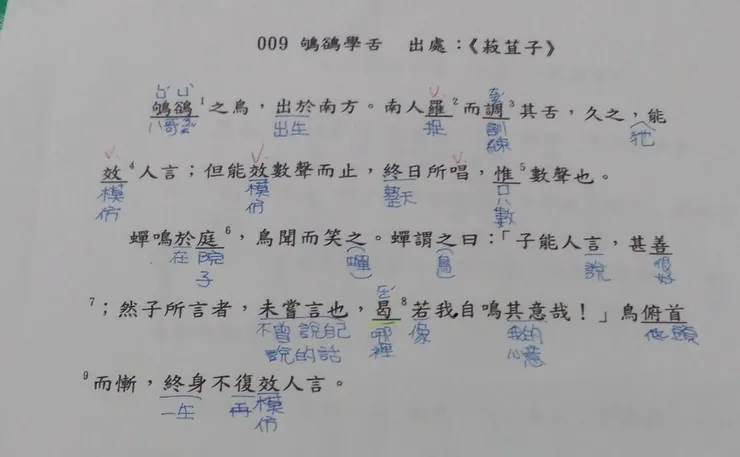 009 鴝鵒學舌 出處：《菽苴子》
鴝鵒¹之鳥，出於南方。南人羅²而調³其舌，久之，能
八哥 出生 捉 訓練 (牠)
效⁴人言；但能效數聲而止，終日所唱，惟⁵數聲也。
模仿 模仿 整天 只
蟬鳴於庭⁶，鳥聞而笑之。蟬謂之曰：「子能人言，甚善
在 院子 (蟬) (鳥) 說 很好
⁷；然子所言者，未嘗言也，曷⁸若我自鳴其意哉！」鳥俯首
不曾 說自己 哪裡 像 我的 低頭
說的話 心意
⁹而慚，終身不復效人言。
一生 再 模仿